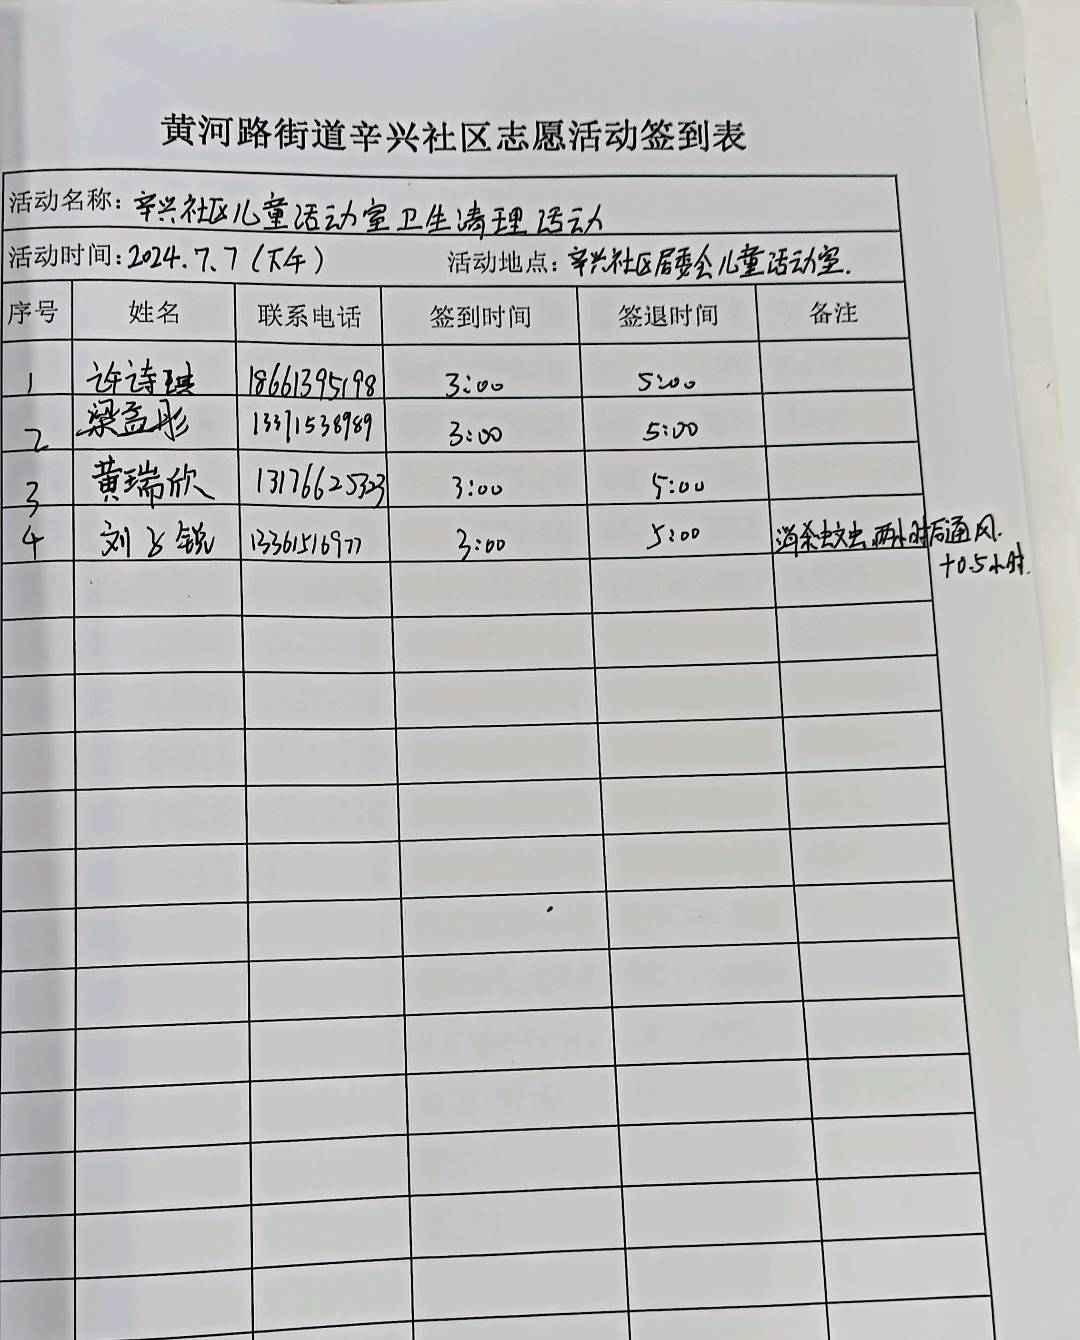 黄河路街道辛兴社区志愿活动签到表
活动名称：辛兴社区儿童活动室卫生清理活动
活动时间：2024.7.7（下午） 活动地点：辛兴社区居委会儿童活动室.
序号 姓名 联系电话 签到时间 签退时间 备注
1 许诗琪 18661395198 3:00 5:00
2 梁孟彤 13371538989 3:00 5:00
3 黄瑞欣 13176625323 3:00 5:00
4 刘子锐 13361516977 3:00 5:00 消杀蚊虫,两小时后通风.
+0.5小时.